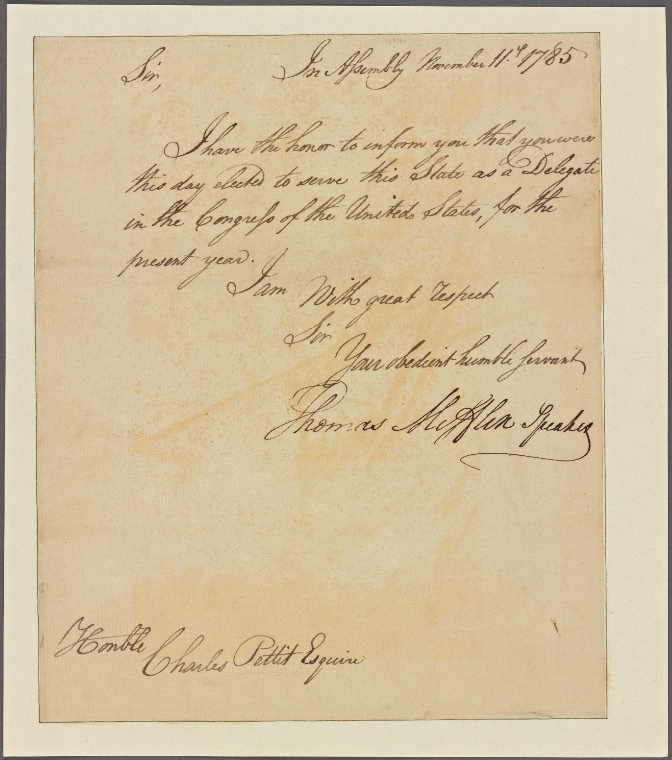 Sir,
In Assembly November 11.th 1785
I have the honor to inform you that you were
this day elected to serve this State as a Delegate
in the Congress of the United States, for the
present year.
I am With great respect
Sir
Your obedient humble servant
Thomas Mifflin Speaker
Honble Charles Pettit Esquire